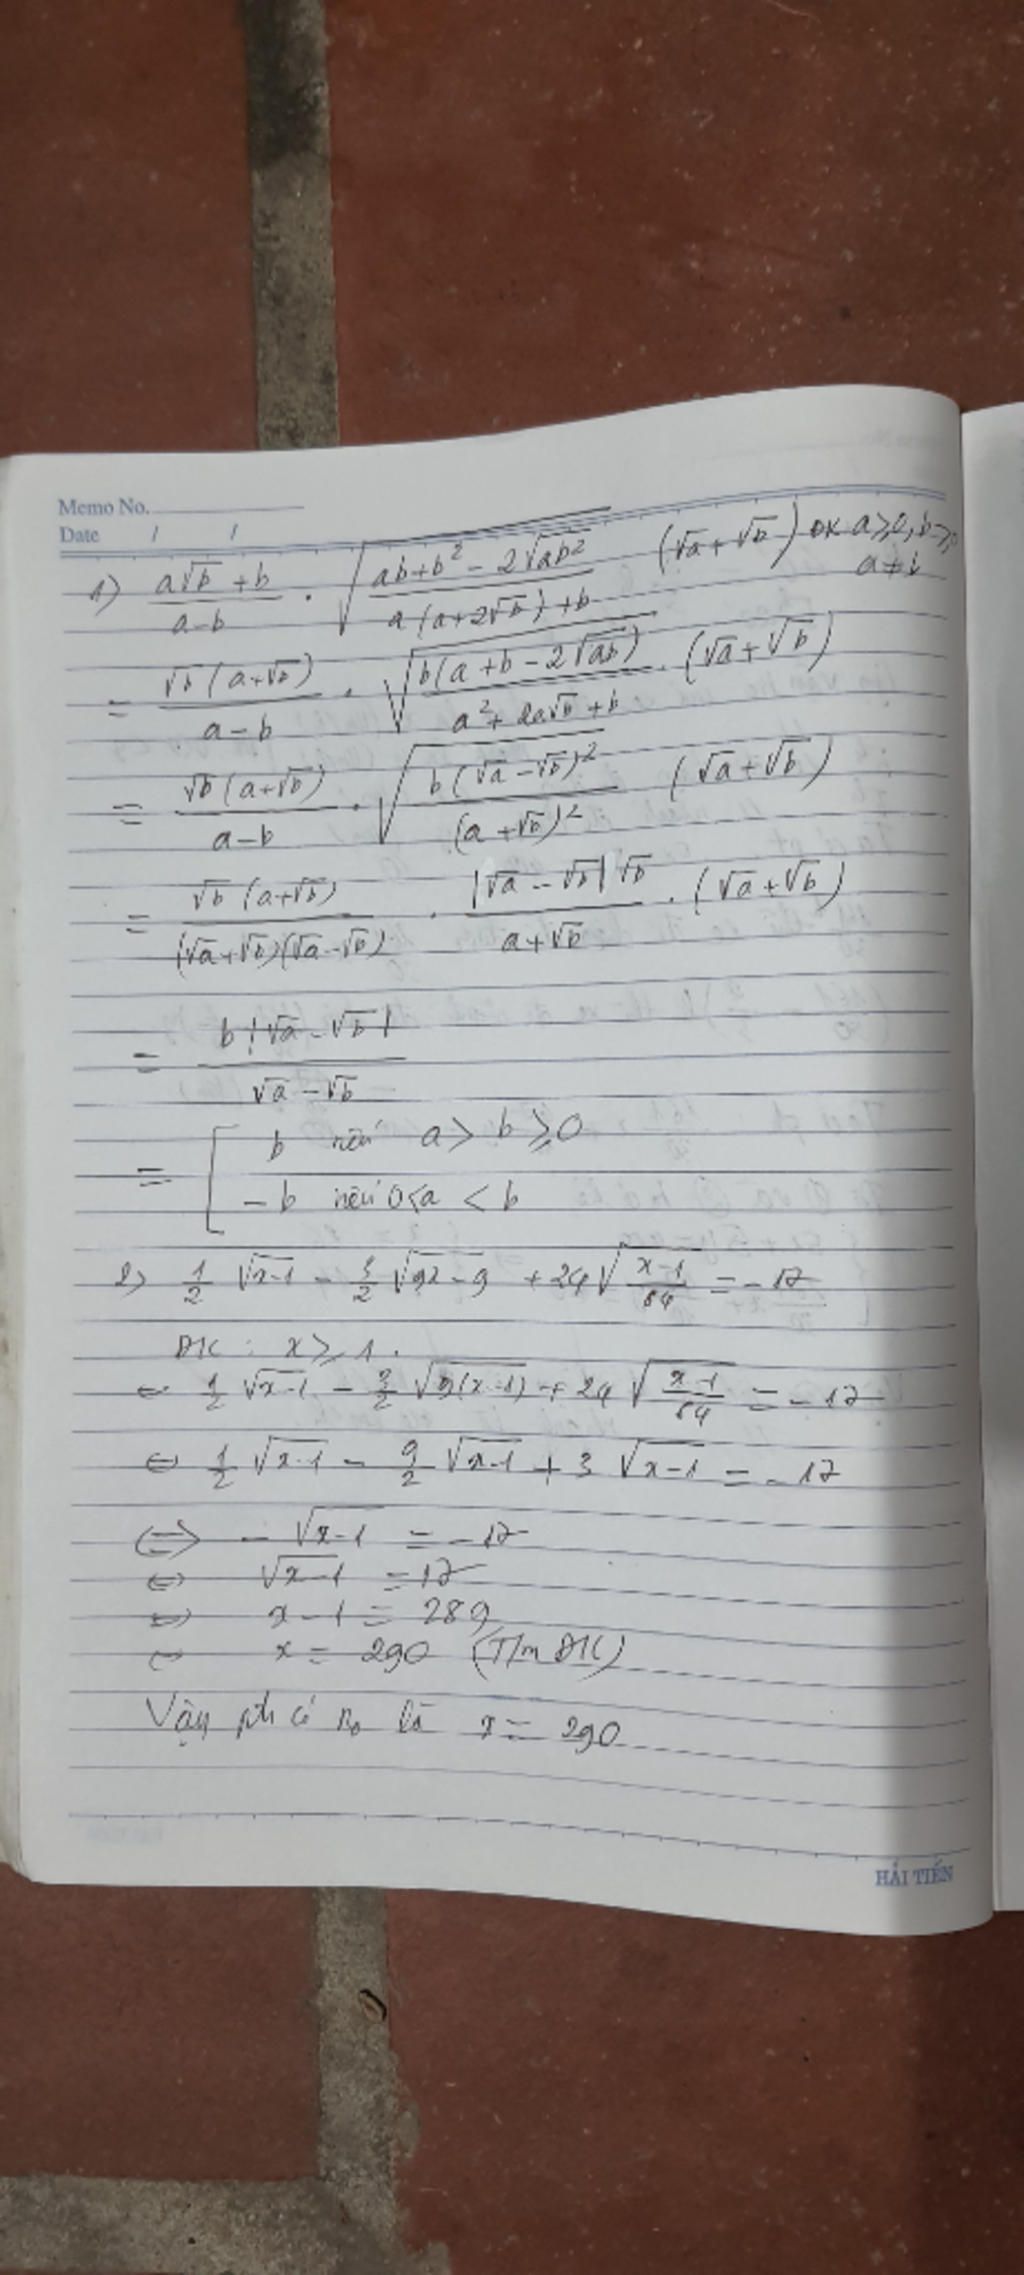 Memo No.
Date / /
1) \frac{a√b + b}{a-b} . √\frac{ab+b² - 2√ab²}{a(a+2√b)+b} (√a + √b) ĐK a ≥ 0, b ≥ 0
a ≠ b
= \frac{√b (a+√b)}{a-b} . √\frac{b(a+b-2√ab)}{a² + 2a√b + b} . (√a + √b)
= \frac{√b (a+√b)}{a-b} . √\frac{b(√a-√b)²}{(a+√b)²} (√a + √b)
= \frac{√b (a+√b)}{(√a+√b)(√a-√b)} . \frac{|√a - √b| √b}{a+√b} . (√a + √b)
= \frac{b|√a - √b|}{√a - √b}
= [ b nếu a > b ≥ 0
- b nếu 0 ≤ a < b
2) \frac{1}{2} √x-1 - \frac{3}{2} √9x-9 + 24√\frac{x-1}{64} = -17
ĐK : x ≥ 1.
⇔ \frac{1}{2} √x-1 - \frac{3}{2} √9(x-1) + 24 √\frac{x-1}{64} = -17
⇔ \frac{1}{2} √x-1 - \frac{9}{2} √x-1 + 3 √x-1 = -17
⇔ - √x-1 = -17
⇔ √x-1 = 17
⇔ x-1 = 289
⇔ x = 290 (T/m ĐK)
Vậy pth có no là x = 290
HẢI TIẾN